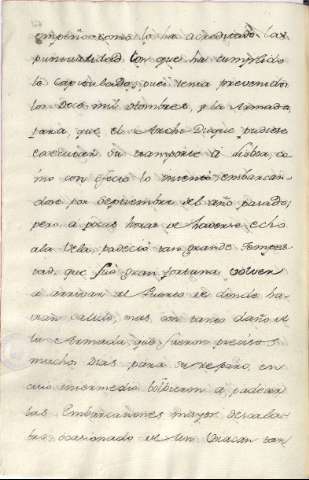 empeño como lo ha acreditado la
puntualidad con que ha cumplido
lo capitulado, pues tenia prevenido
los Doce mil Hombres, y la Armada
para que el Archi Duque pudiese
executar su transporte à Lisboa, co
mo con efecto lo intentó embarcan
dose por Septiembre del año pasado,
pero a pocas horas de haverse echo
ala Vela, padeció tan grande tempes
tad, que fue gran fortuna volver
à arrivar al Puerto de donde ha
vian salido, mas con tanto daño de
la Armada que fueron precisos
muchos Dias para su reparo, en
cuio intermedio volvieron à padecer
las Embarcaciones mayor descala
bro, ocasionado de un Uracan tan